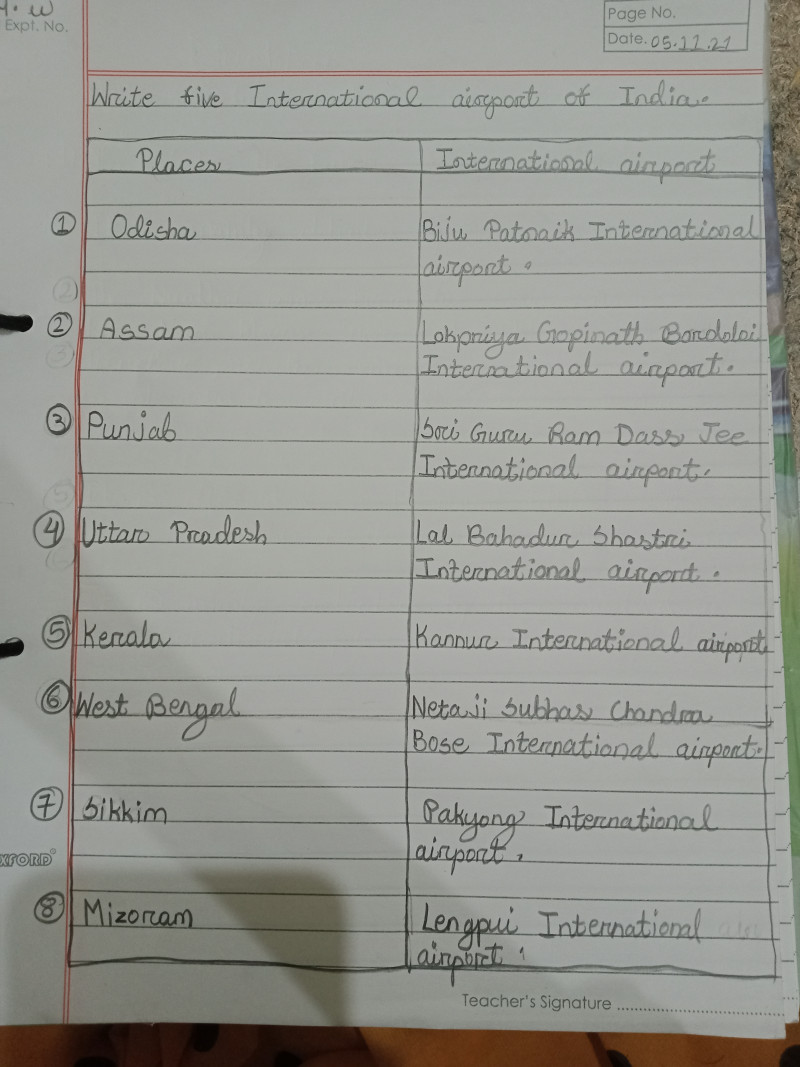 H.W
Expt. No.
Page No.
Date. 05.11.21
Write five International airport of India.
Places International airport
① Odisha Biju Patnaik International
airport.
② Assam Lokpriya Gopinath Bordoloi
International airport.
③ Punjab Sri Guru Ram Dass Jee
International airport.
④ Uttar Pradesh Lal Bahadur Shastri
International airport.
⑤ Kerala Kannur International airport
⑥ West Bengal Netaji Subhas Chandra
Bose International airport.
⑦ Sikkim Pakyong International
airport.
⑧ Mizoram Lengpui International
airport.
Teacher's Signature